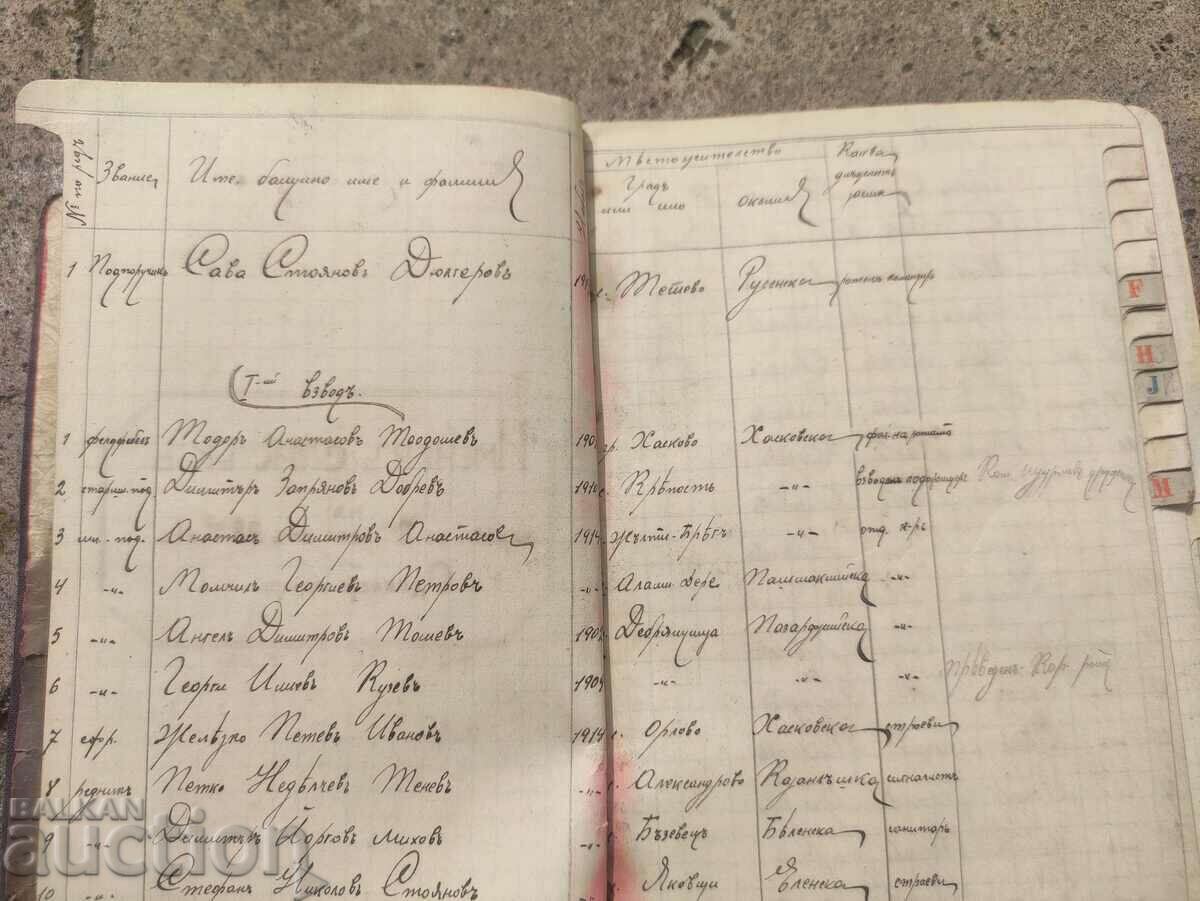 № по редъ Званиe Име, бащино име и фамилия Местожителство Каква
Градъ или село околия длъжность
1 Подпоручикъ Сава Стояновъ Дюлгеровъ с. Тетово Русенска ротенъ командиръ
I-ий взводъ.
1 фелдфебелъ Тодоръ Анастасовъ гр. Хасково Хасковска
2 старш. под. Димитъръ Запряновъ Добревъ 1914 с. Крѣпость -"- взводенъ подофицеръ
3 мл. под. Анастасъ Димитровъ Анастасовъ 1914 Жълти-Брѣгъ -"- отд. к-ръ
4 -"- Момчилъ Георгиевъ Петровъ -"- Алами Дере Пашмаклийска -"-
5 -"- Ангелъ Димитровъ Тошевъ Дебращица Пазарджийска -"-
6 -"- Георги Илиевъ Кузевъ 1909 -"- -"- -"-
7 ефр. Желѣзко Петевъ Ивановъ 1914 с. Орлово Хасковска строеви
8 редникъ Петко Недѣлчевъ Теневъ -"- с. Александрово Казанлъшка сигналистъ
9 -"- Димитъръ Йорговъ Миховъ -"- Бъзовецъ Бѣленска санитаръ
10 -"- Стефанъ Николовъ Стояновъ -"- с. Яковци Еленска строеви
F
H
J
M
BALKAN
auction